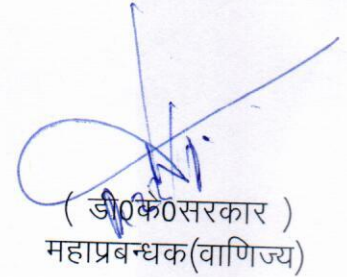 ( डी0के0सरकार )
महाप्रबन्धक(वाणिज्य)